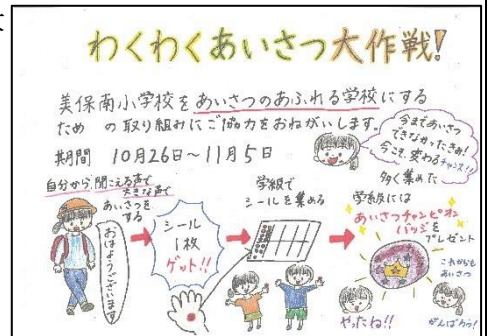 わくわくあいさつ大作戦!
美保南小学校をあいさつのあふれる学校にする
ため の取り組みにご協力をおねがいします。
期間 10月26日～11月5日
今まであいさつ
できなかったきみ!
今こそ、変わるチャンス!!
自分から、聞こえる声で
大きな声で
あいさつを
する
おはようございます
シール
1枚
ゲット!!
学級で
シールを集める
多く集めた
学級には
あいさつチャンピオン
バッジを
プレゼント
やったね!!
これからも
あいさつ
がんばろう!